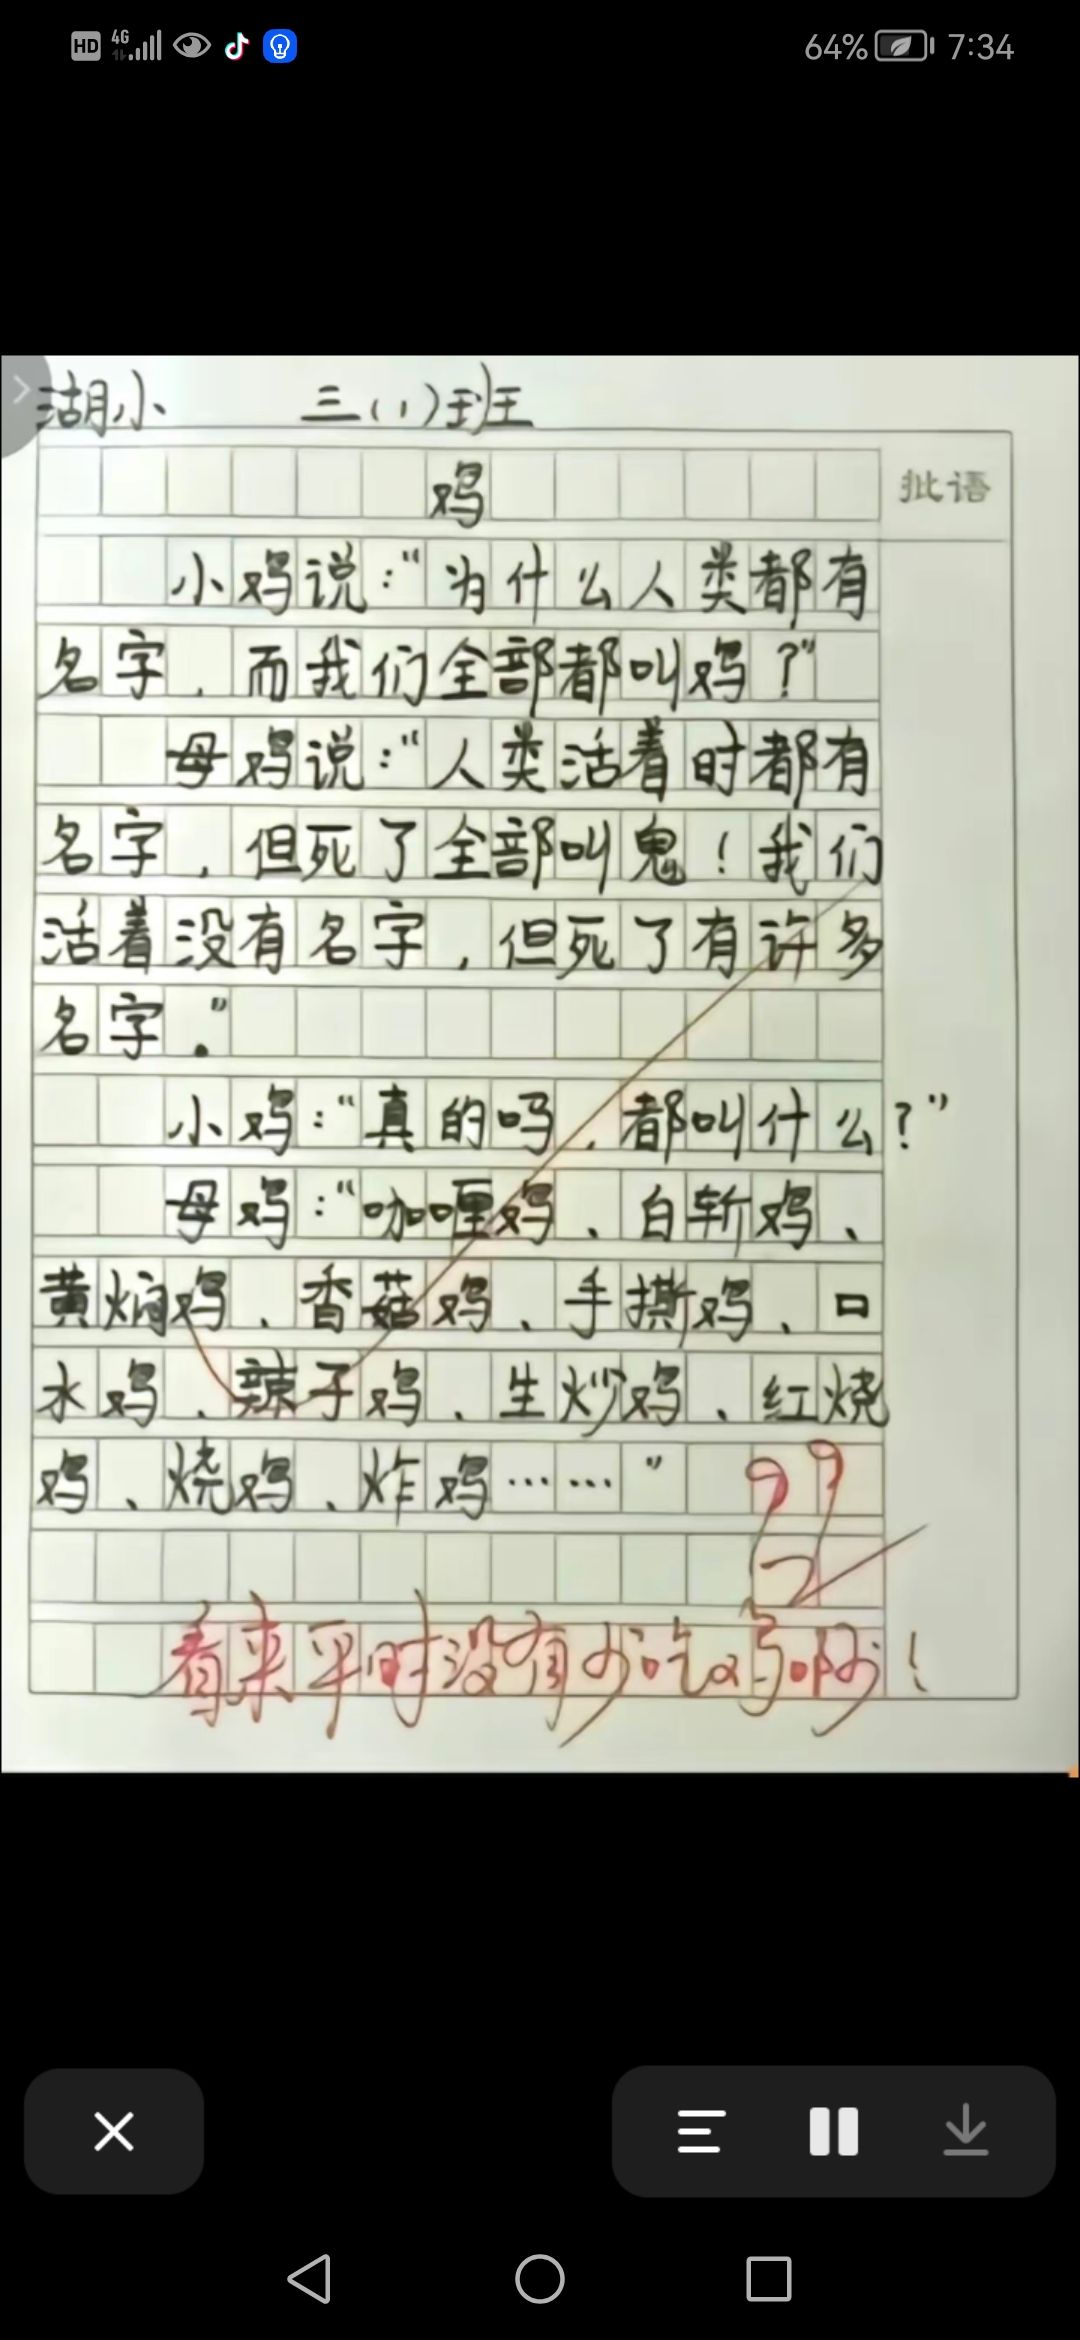 HD 4G 64% 7:34
湖小 三(1)班
鸡
批语
小鸡说:“为什么人类都有
名字,而我们全部都叫鸡?”
母鸡说:“人类活着时都有
名字,但死了全部叫鬼!我们
活着没有名字,但死了有许多
名字.”
小鸡:“真的吗,都叫什么?”
母鸡:“咖喱鸡、白斩鸡、
黄焖鸡、香菇鸡、手撕鸡、口
水鸡、辣子鸡、生炒鸡、红烧
鸡、烧鸡、炸鸡……”
99
看来平时没有少吃鸡啊!